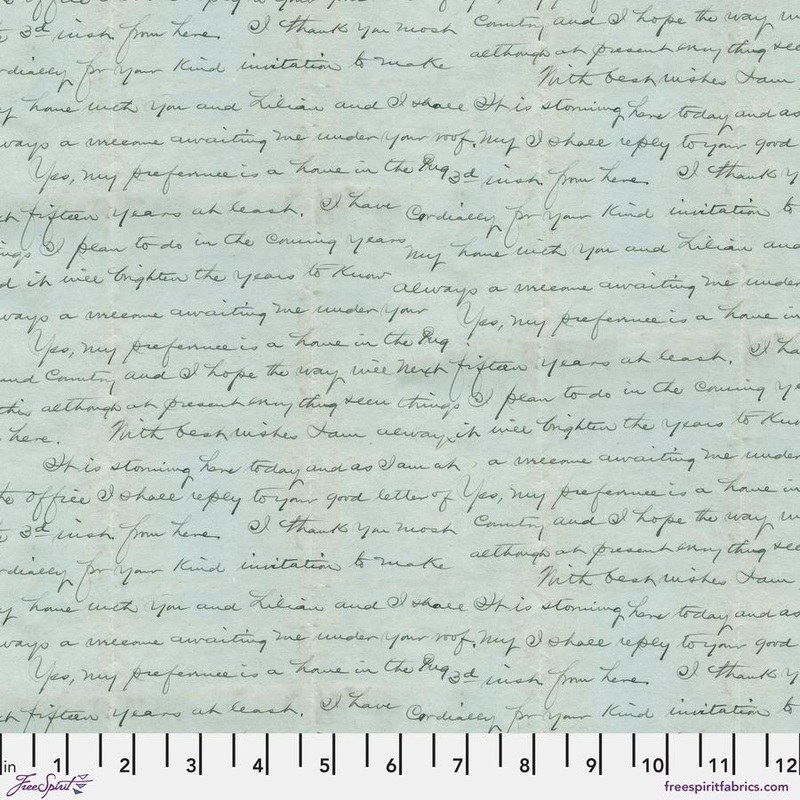 office I shall reply to your good
3d inst. from here. I thank you most Country and I hope the way
although at present everything see
cordially for your kind invitation to make With best wishes I am
my home with you and Lilian and I shall It is storming here today and as
always a welcome awaiting me under your roof. My I shall reply to your good
Yes, my preference is a home in the 3d inst. from here. I thank y
fifteen years at least. I have Cordially for your kind invitation to
things I plan to do in the coming years My home with you and Lilian and
d it will brighten the years to know always a welcome awaiting me under
always a welcome awaiting me under your Yes, my preference is a home in
Yes, my preference is a home in the
and Country and I hope the way will Next fifteen years at least. I ha
this although at present everything seen things I plan to do in the coming ye
here. With best wishes I am always it will brighten the years to know
It is storming here today and as I am at a welcome awaiting me under
the office I shall reply to your good letter of Yes, my preference is a home in
3d inst. from here. I thank you most Country and I hope the way
although at present everything see
cordially for your kind invitation to make With best wishes I am
my home with you and Lilian and I shall It is storming here today and as
always a welcome awaiting me under your roof. My I shall reply to your good
Yes, my preference is a home in the 3d inst. from here. I thank y
fifteen years at least. I have Cordially for your kind invitation to
in 1 2 3 4 5 6 7 8 9 10 11 12
FreeSpirit freespiritfabrics.com